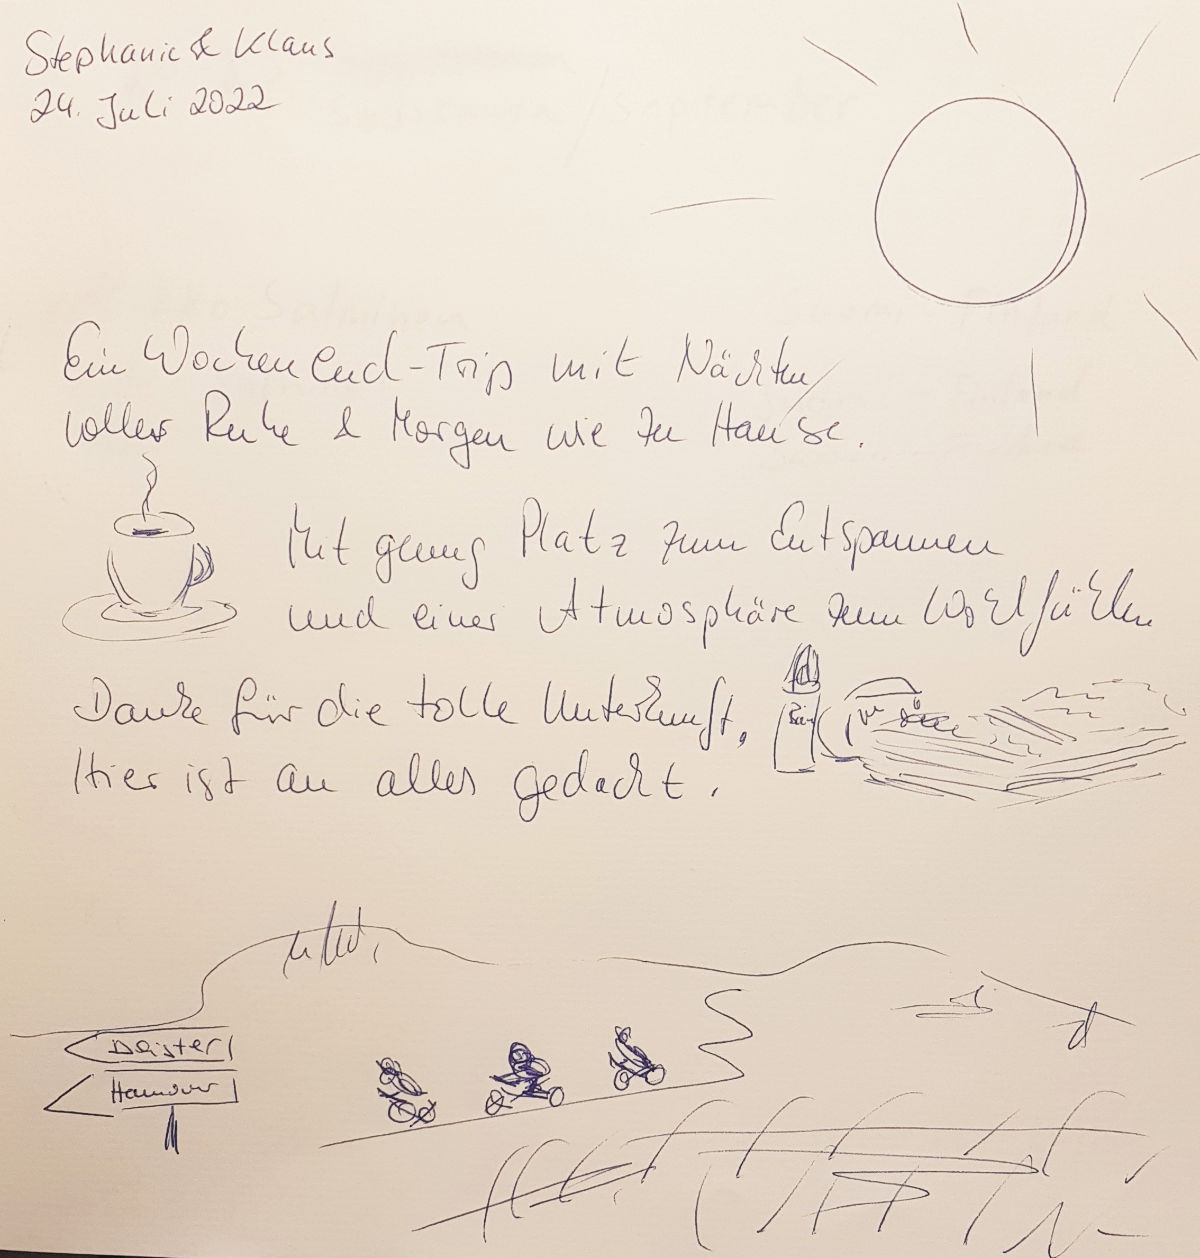 Stephanie & Klaus
24. Juli 2022
Ein Wochenend-Trip mit Nächten
voller Ruhe & Morgen wie zu Hause.
Mit genug Platz zum Entspannen
und einer Atmosphäre zum Wohlfühlen
Danke für die tolle Unterkunft,
Hier ist an alles gedacht.
Deister
Hannover